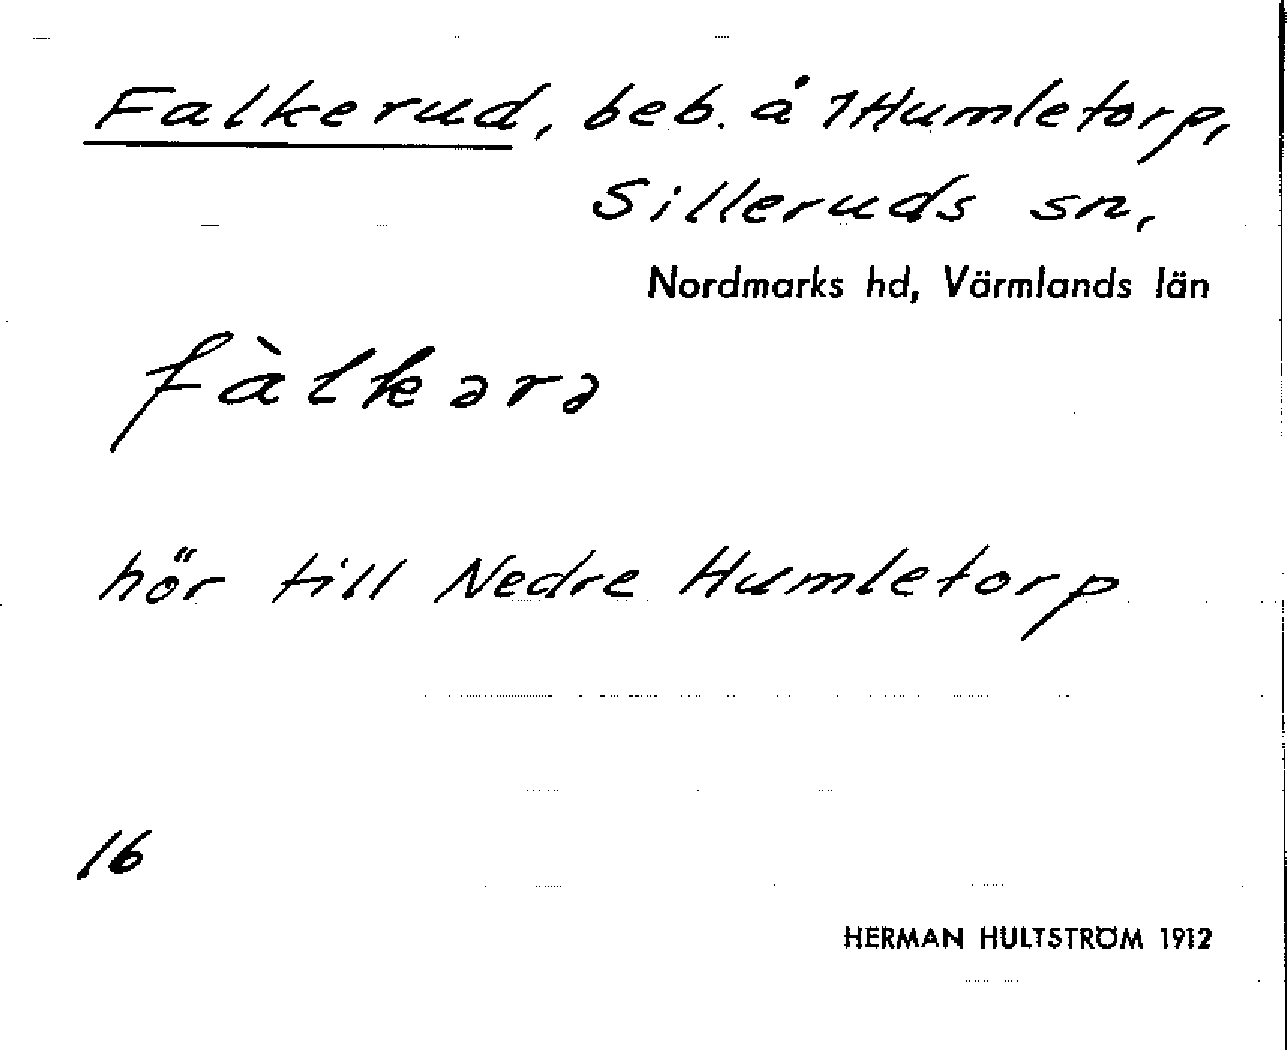 Falkerud, beb. å 1Humletorp,
Silleruds sn,
Nordmarks hd, Värmlands län
fàlkərə
hör till Nedre Humletorp
16
HERMAN HULTSTRÖM 1912